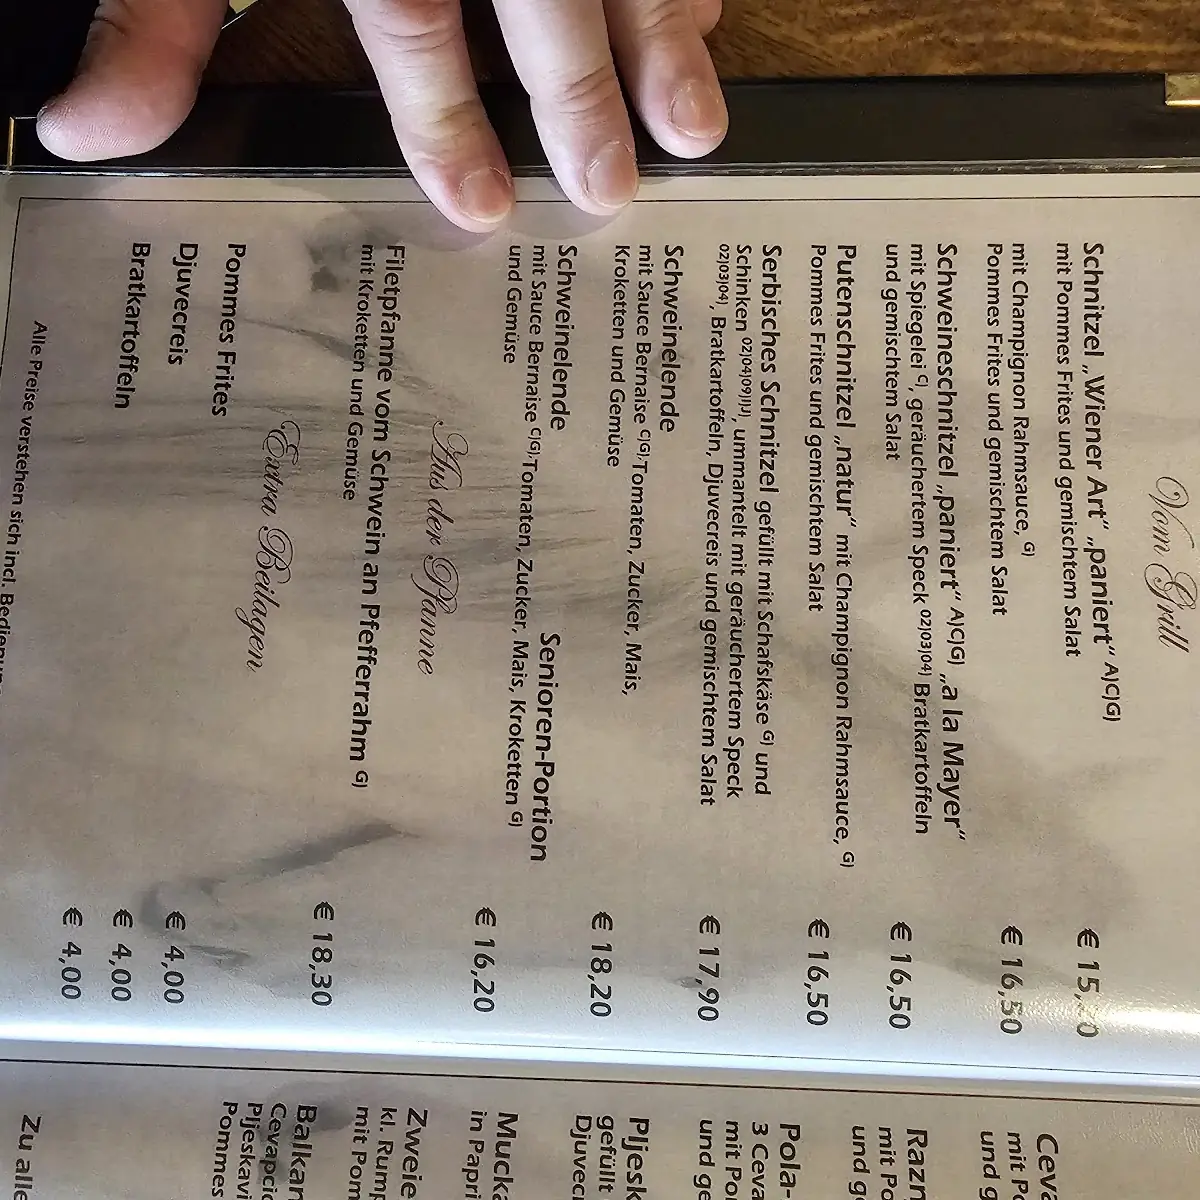 Vom Grill
Schnitzel „Wiener Art“ „paniert“ A)C)G)
mit Pommes Frites und gemischtem Salat
mit Champignon Rahmsauce, G)
Pommes Frites und gemischtem Salat € 16,50
Schweineschnitzel „paniert“ A)C)G) „a la Mayer“
mit Spiegelei C), geräuchertem Speck 02)03)04) Bratkartoffeln
und gemischtem Salat € 16,50
Putenschnitzel „natur“ mit Champignon Rahmsauce, G)
Pommes Frites und gemischtem Salat € 16,50
Serbisches Schnitzel gefüllt mit Schafskäse G) und
Schinken 02)04)09)I)J), ummantelt mit geräuchertem Speck
02)03)04), Bratkartoffeln, Djuvecreis und gemischtem Salat € 17,90
Schweinelende
mit Sauce Bernaise C)G),Tomaten, Zucker, Mais,
Kroketten und Gemüse € 18,20
Schweinelende Senioren-Portion
mit Sauce Bernaise C)G),Tomaten, Zucker, Mais, Kroketten G)
und Gemüse € 16,20
Aus der Pfanne
Filetpfanne vom Schwein an Pfefferrahm G)
mit Kroketten und Gemüse € 18,30
Extra Beilagen
Pommes Frites € 4,00
Djuvecreis € 4,00
Bratkartoffeln € 4,00
Alle Preise verstehen sich incl.
mit
und
mit
und
3
mit
und
gefüllt
in
kl.
mit
Pommes
Zu